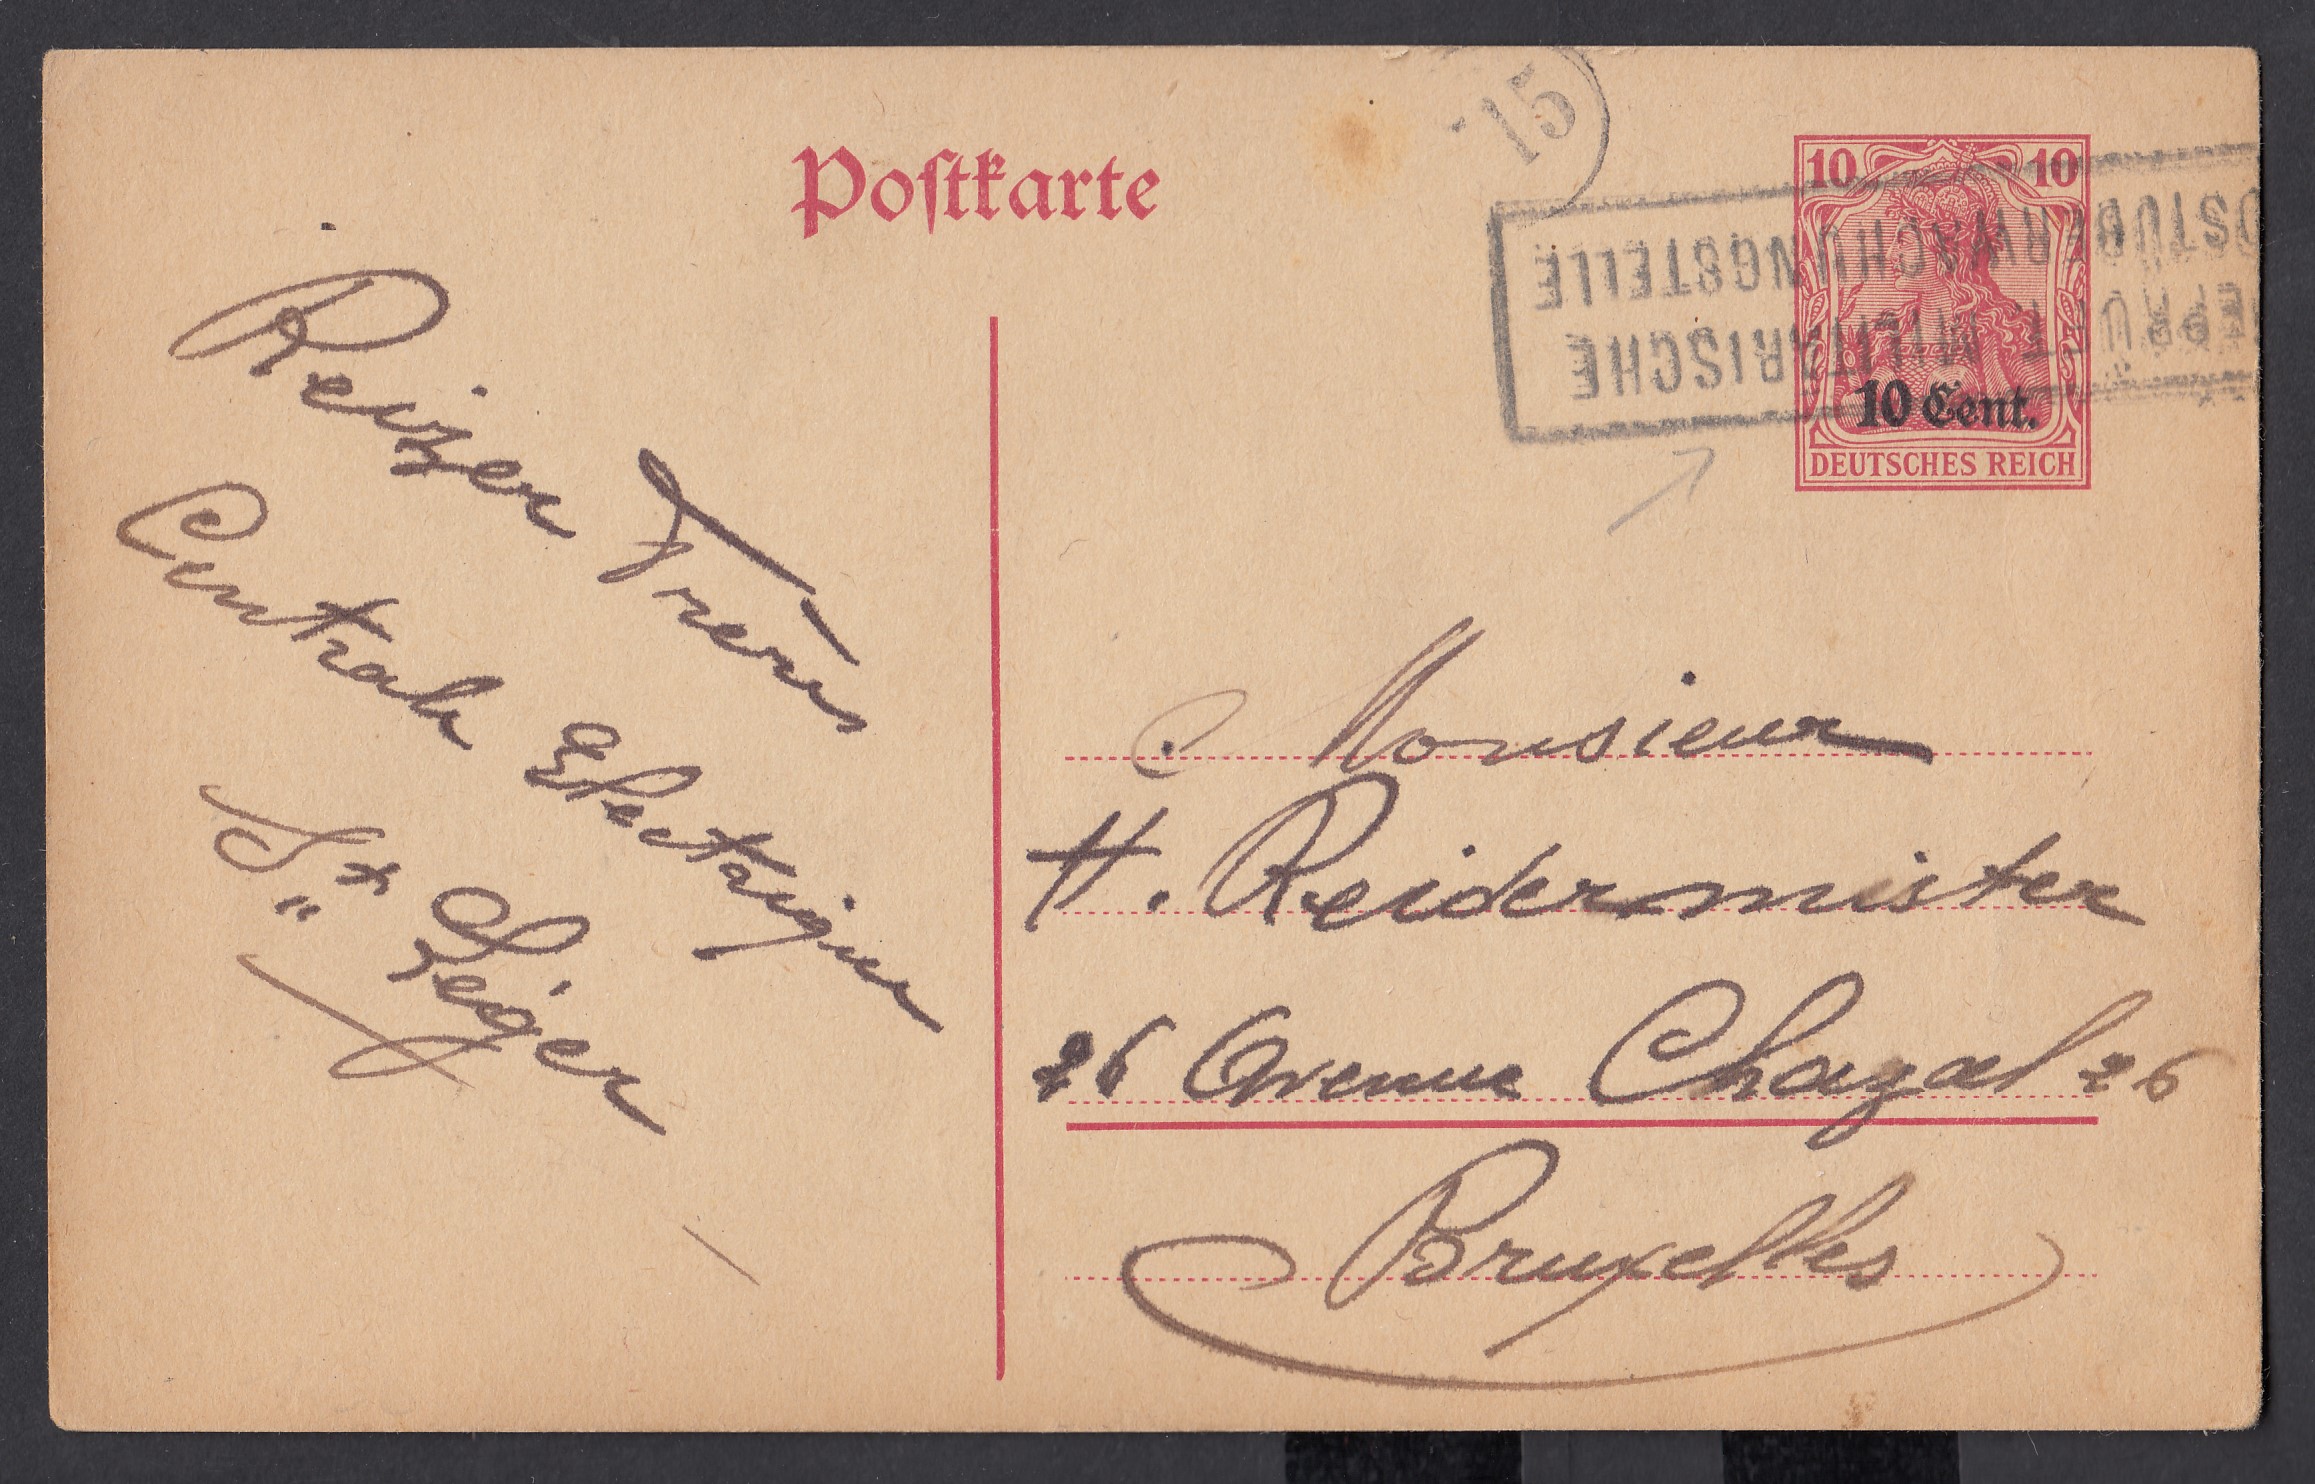 Postkarte
15
10 10
GEPRÜFT MILITÄRISCHE
POSTÜBERWACHUNGSTELLE
10 Cent.
DEUTSCHES REICH
Reizer Frères
Centrale Electrique
St Léger
Monsieur
H. Reidermister
26 Avenue Chazal 26
Bruxelles